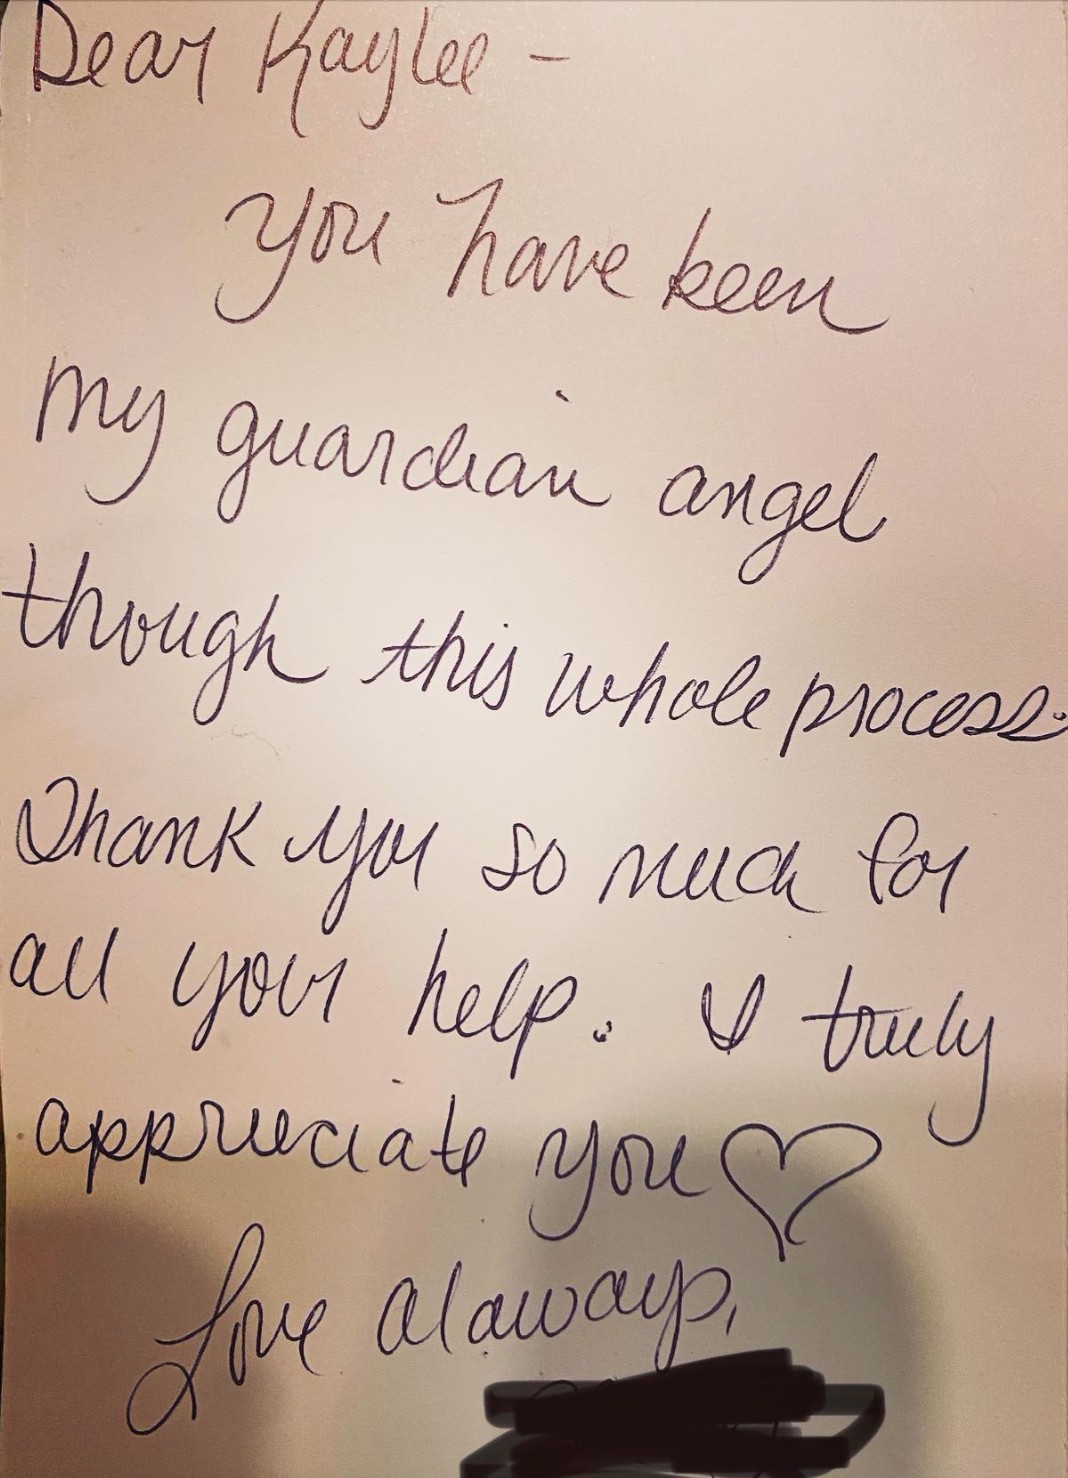 Dear Kaylee -
you have been
my guardian angel
though this whole process.
Thank you so much for
all your help. I truly
appreciate you ♡
Love alaways,